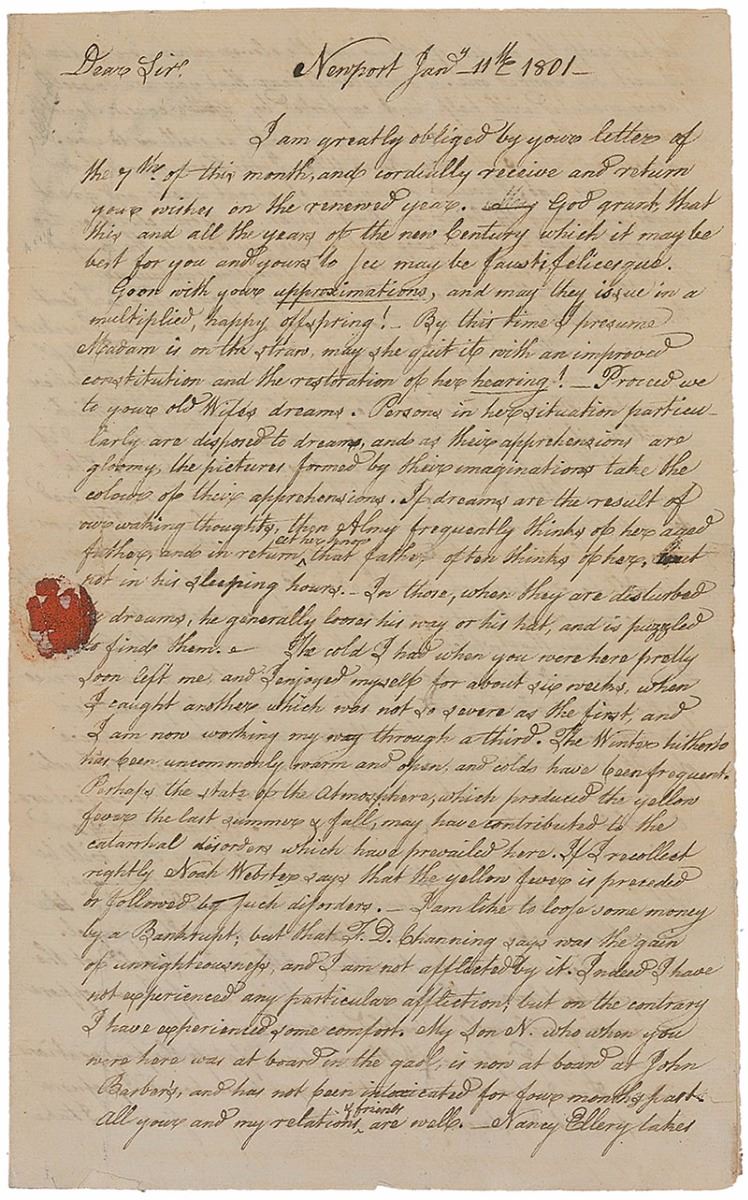 Dear Sir. Newport Jany. 11th. 1801
I am greatly obliged by your letter of
the 7th. of this month, and cordially receive and return
your wishes on the renewed year. God grant, that
this and all the years of the new Century which it may be
best for you and yours to see may be fausti, felicesque.
Go on with your approximations, and may they issue in a
multiplied, happy offspring! — By this time I presume
Madam is on the straw, may she quit it with an improved
constitution and the restoration of her hearing! — Proceed we
to your old Wife's dreams. Persons in her situation particu-
larly are disposed to dream, and as their apprehensions are
gloomy, the pictures formed by their imaginations take the
colour of their apprehensions. If dreams are the result of
our waking thoughts, then Almy frequently thinks of her aged
father, and in return, that father often thinks of her, but
not in his sleeping hours. — In those, when they are disturbed
by dreams, he generally looses his way or his hat, and is puzzled
to find them. — The cold I had when you were here pretty
soon left me, and I enjoyed myself for about six weeks, when
I caught another which was not so severe as the first, and
I am now working my way through a third. The Winter hitherto
has been uncommonly warm and open, and colds have been frequent.
Perhaps the state of the Atmosphere, which produced the yellow
fever the last summer & fall, may have contributed to the
catarrhal disorders which have prevailed here. If I recollect
rightly Noah Webster says that the yellow fever is preceded
or followed by such disorders. — I am like to loose some money
by a Bankrupt; but that F. D. Channing says was the gain
of unrighteousness, and I am not afflicted by it. Indeed I have
not experienced any particular affliction; but on the contrary
I have experienced some comfort. My Son N. who when you
were here was at board in the gaol, is now at board at John
Barber's, and has not been intoxicated for four months past.
All your and my relations & friends are well. — Nancy Ellery takes